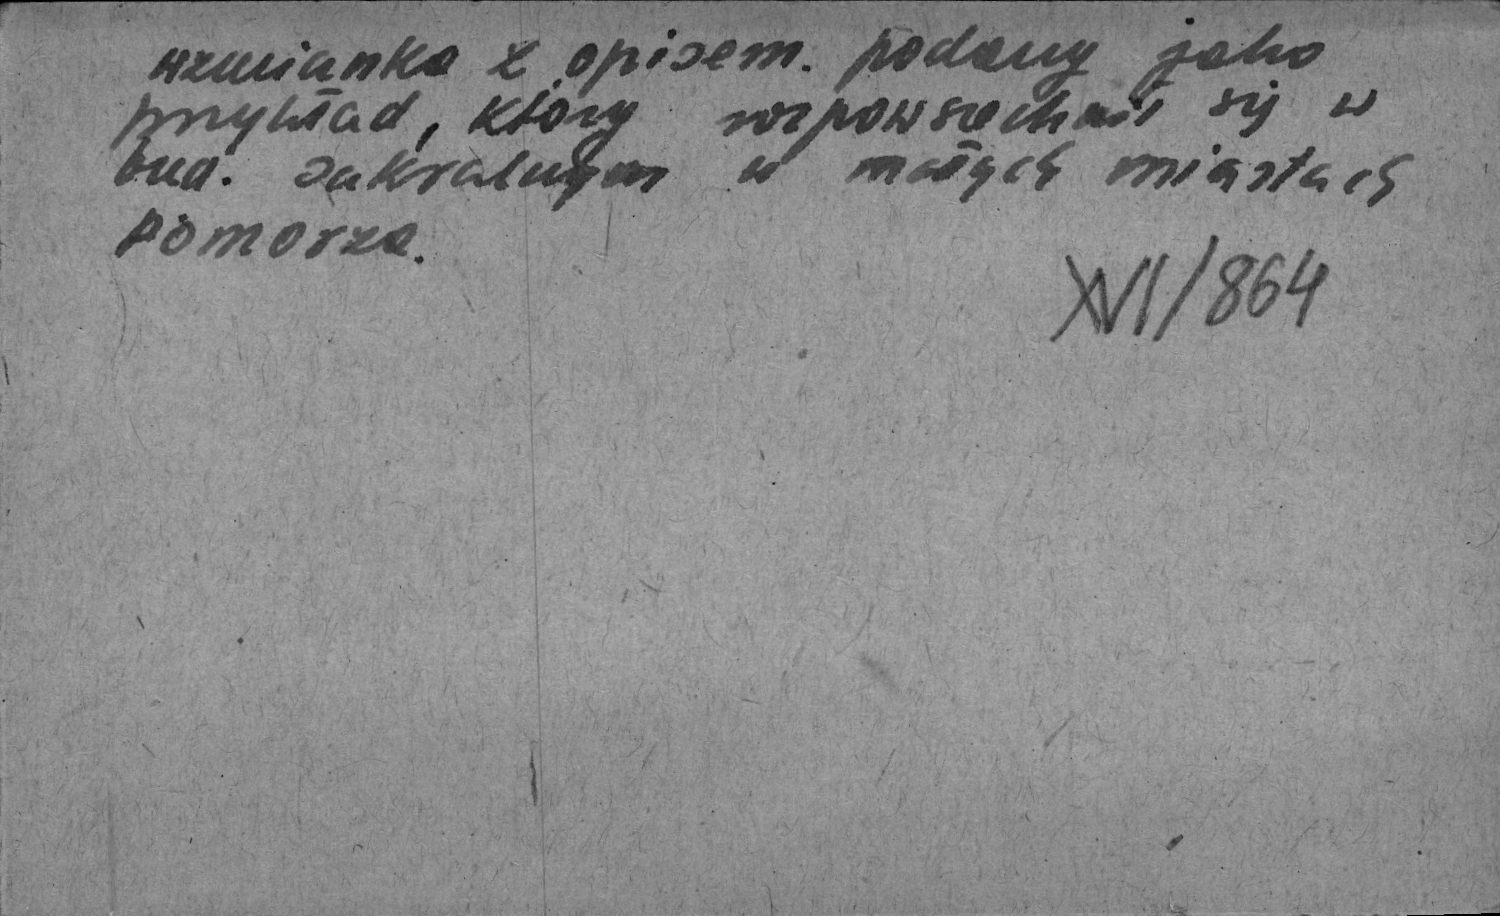 wzmianka z opisem. podany jako
przykład, który rozpowszechnił się w
bud. sakralnym w małych miastach
Pomorza.
XVI/864